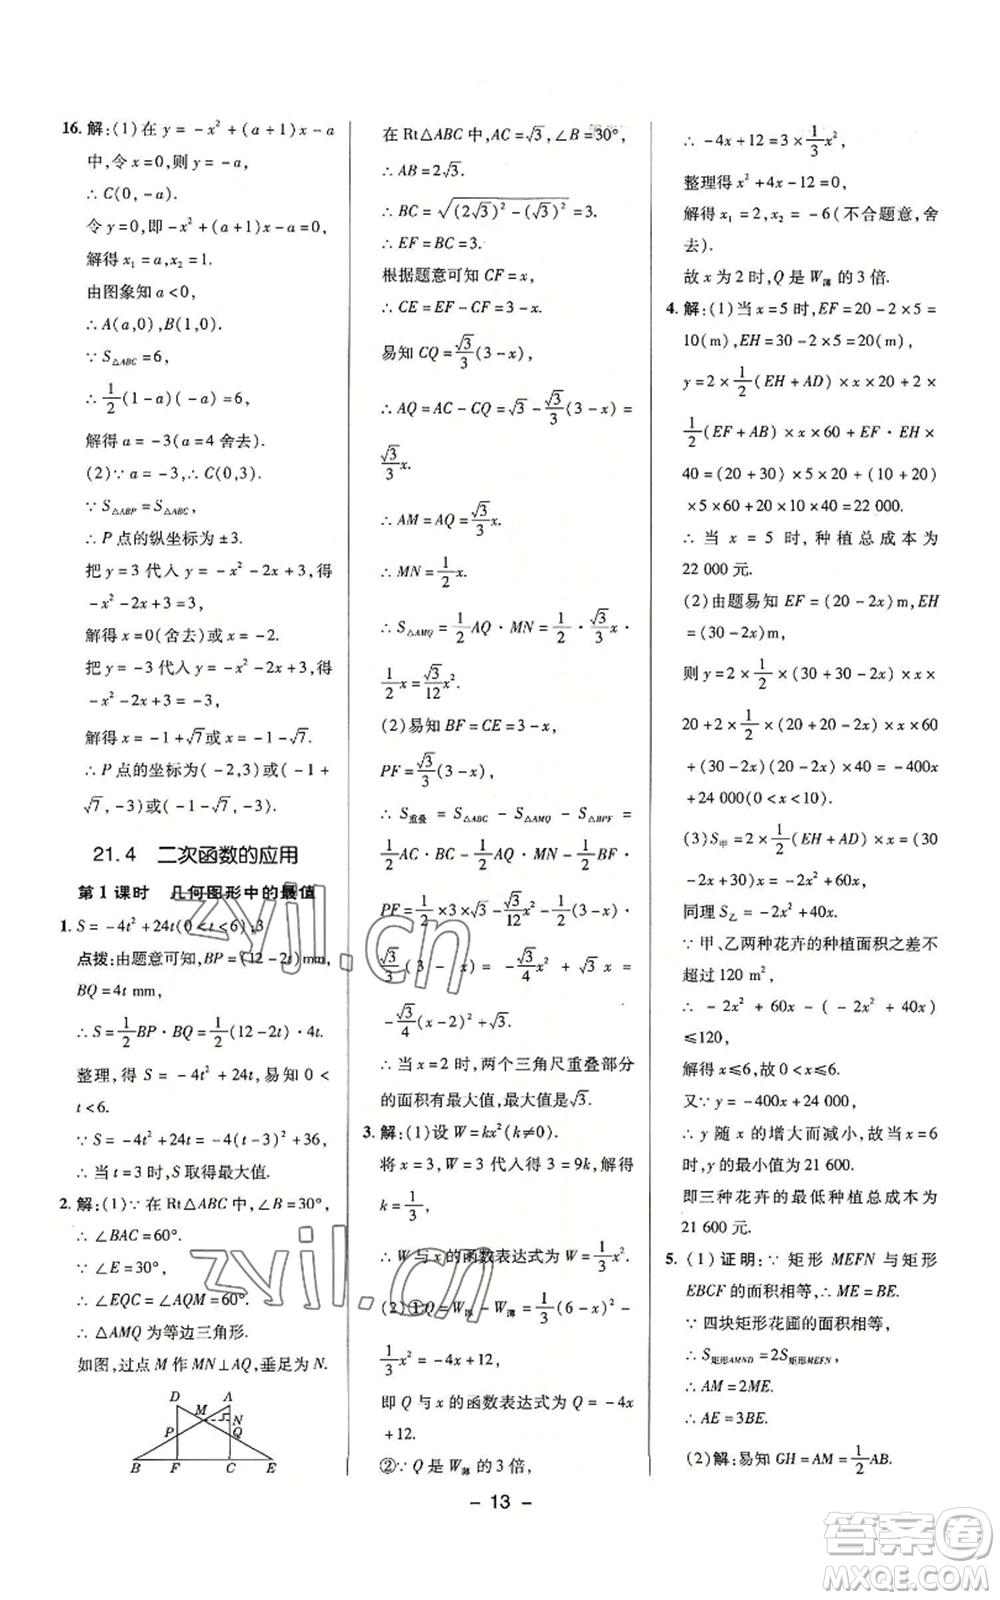 16. 解:(1)在 y = -x² + (a+1)x - a
中,令 x=0,则 y = -a,
∴ C(0, -a).
令 y=0,即 -x² + (a+1)x - a = 0,
解得 x₁ = a,x₂ = 1.
由图象知 a<0,
∴ A(a,0),B(1,0).
∵ S△ABC = 6,
∴ 1/2(1-a)(-a) = 6,
解得 a = -3(a=4 舍去).
(2)∵ a = -3,∴ C(0,3).
∵ S△ABP = S△ABC,
∴ P 点的纵坐标为 ±3.
把 y=3 代入 y = -x² - 2x + 3,得
-x² - 2x + 3 = 3,
解得 x=0(舍去)或 x = -2.
把 y = -3 代入 y = -x² - 2x + 3,得
-x² - 2x + 3 = -3,
解得 x = -1+√7或 x = -1-√7.
∴ P 点的坐标为(-2,3)或(-1+
√7,-3)或(-1-√7,-3).
21.4 二次函数的应用
第 1 课时 几何图形中的最值
1. S = -4t² + 24t(0<t<6);3
点拨:由题意可知,BP = (12-2t)mm,
BQ = 4t mm,
∴ S = 1/2 BP·BQ = 1/2(12-2t)·4t.
整理,得 S = -4t² + 24t,易知 0<
t<6.
∵ S = -4t² + 24t = -4(t-3)² + 36,
∴ 当 t=3 时,S 取得最大值.
2. 解:(1)∵ 在 Rt△ABC 中,∠B = 30°,
∴ ∠BAC = 60°.
∵ ∠E = 30°,
∴ ∠EQC = ∠AQM = 60°.
∴ △AMQ 为等边三角形.
如图,过点 M 作 MN⊥AQ,垂足为 N.
D A
M N
P Q
B F C E
在 Rt△ABC 中,AC = √3,∠B = 30°,
∴ AB = 2√3.
∴ BC = √((2√3)² - (√3)²) = 3.
∴ EF = BC = 3.
根据题意可知 CF = x,
∴ CE = EF - CF = 3 - x.
易知 CQ = √3/3(3-x),
∴ AQ = AC - CQ = √3 - √3/3(3-x) =
√3/3 x.
∴ AM = AQ = √3/3 x.
∴ MN = 1/2 x.
∴ S△AMQ = 1/2 AQ·MN = 1/2 × √3/3 x·
1/2 x = √3/12 x².
(2)易知 BF = CE = 3-x,
PF = √3/3(3-x),
∴ S重叠 = S△ABC - S△AMQ - S△BPF =
1/2 AC·BC - 1/2 AQ·MN - 1/2 BF·
PF = 1/2 × 3 × √3 - √3/12 x² - 1/2(3-x)·
√3/3(3-x) = -√3/4 x² + √3/3 x =
-√3/4(x-2)² + √3.
∴ 当 x=2 时,两个三角尺重叠部分
的面积有最大值,最大值是√3.
3. 解:(1)设 W = kx²(k≠0).
将 x=3,W=3 代入得 3=9k,解得
k = 1/3,
∴ W 与 x 的函数表达式为 W = 1/3 x².
(2)①Q = W厚 - W薄 = 1/3(6-x)² -
1/3 x² = -4x + 12,
即 Q 与 x 的函数表达式为 Q = -4x
+12.
②∵ Q 是 W薄 的 3 倍,
∴ -4x + 12 = 3 × 1/3 x²,
整理得 x² + 4x - 12 = 0,
解得 x₁ = 2,x₂ = -6(不合题意,舍
去).
故 x 为 2 时,Q 是 W薄 的 3 倍.
4. 解:(1)当 x=5 时,EF = 20-2×5 =
10(m),EH = 30-2×5 = 20(m),
y = 2 × 1/2(EH+AD) × x × 20 + 2 ×
1/2(EF+AB) × x × 60 + EF·EH ×
40 = (20+30) × 5 × 20 + (10+20)
×5×60+20×10×40=22 000.
∴ 当 x = 5 时,种植总成本为
22 000 元.
(2)由题易知 EF = (20-2x)m,EH
= (30-2x)m,
则 y = 2 × 1/2 × (30-2x+30) × x ×
20 + 2 × 1/2 × (20-2x+20) × x × 60
+ (30-2x)(20-2x) × 40 = -400x
+24 000(0<x<10).
(3)S甲 = 2 × 1/2(EH+AD) × x = (30
-2x+30)x = -2x²+60x,
同理 S乙 = -2x²+40x.
∵ 甲、乙两种花卉的种植面积之差不
超过 120 m²,
∴ -2x² + 60x - (-2x² + 40x)
≤120,
解得 x≤6.
又∵ y = -400x+24 000,
∴ y 随 x 的增大而减小,故当 x=6
时,y 的最小值为 21 600.
即三种花卉的最低种植总成本为
21 600 元.
5. (1)证明:∵ 矩形 MEFN 与矩形
EBCF 的面积相等,∴ ME = BE.
∵ 四块矩形花圃的面积相等,
∴ S矩形AMND = 2S矩形MEFN,
∴ AM = 2ME.
∴ AE = 3BE.
(2)解:易知 GH = AM = 1/2 AB.
- 13 -
zyjl.cn
zyjl.cn
答案卷
MXQE.COM